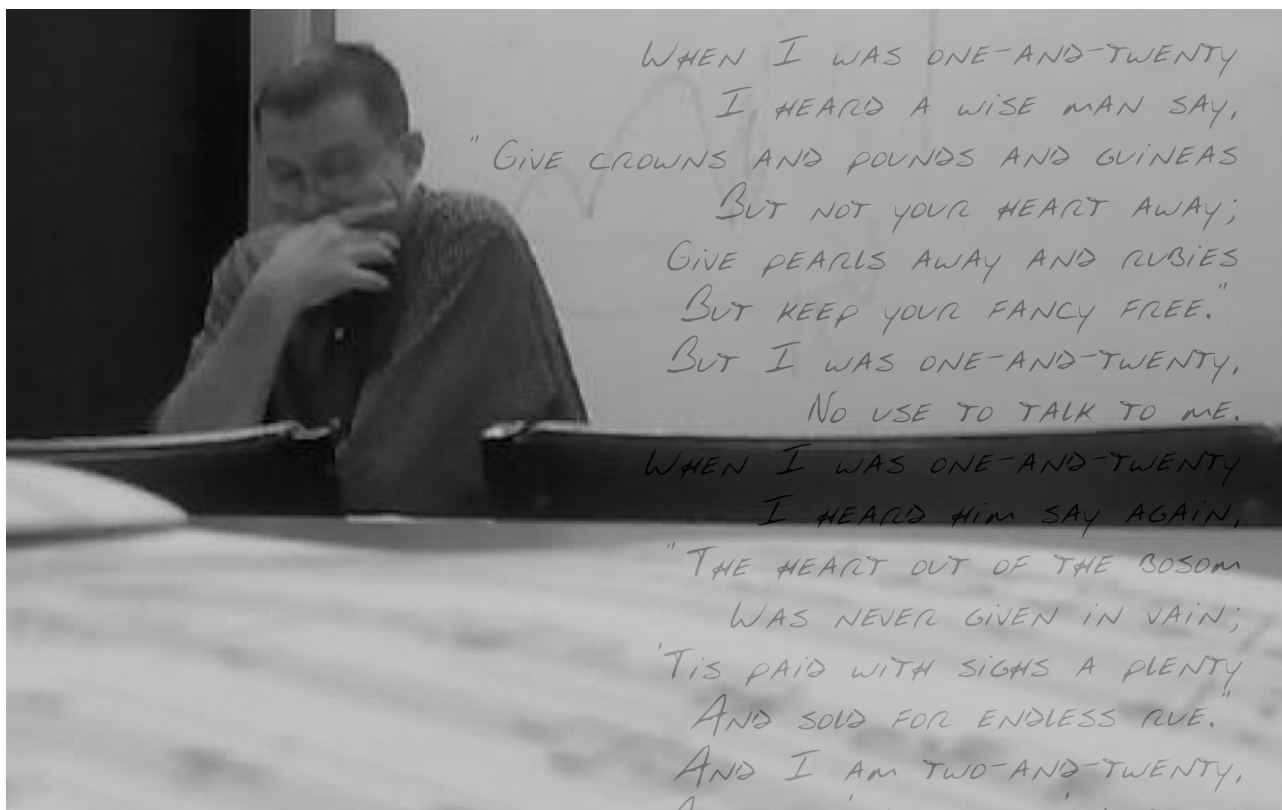 When I was one-and-twenty
I heard a wise man say,
"Give crowns and pounds and guineas
But not your heart away;
Give pearls away and rubies
But keep your fancy free."
But I was one-and-twenty,
No use to talk to me.
When I was one-and-twenty
I heard him say again,
"The heart out of the bosom
Was never given in vain;
'Tis paid with sighs a plenty
And sold for endless rue."
And I am two-and-twenty,